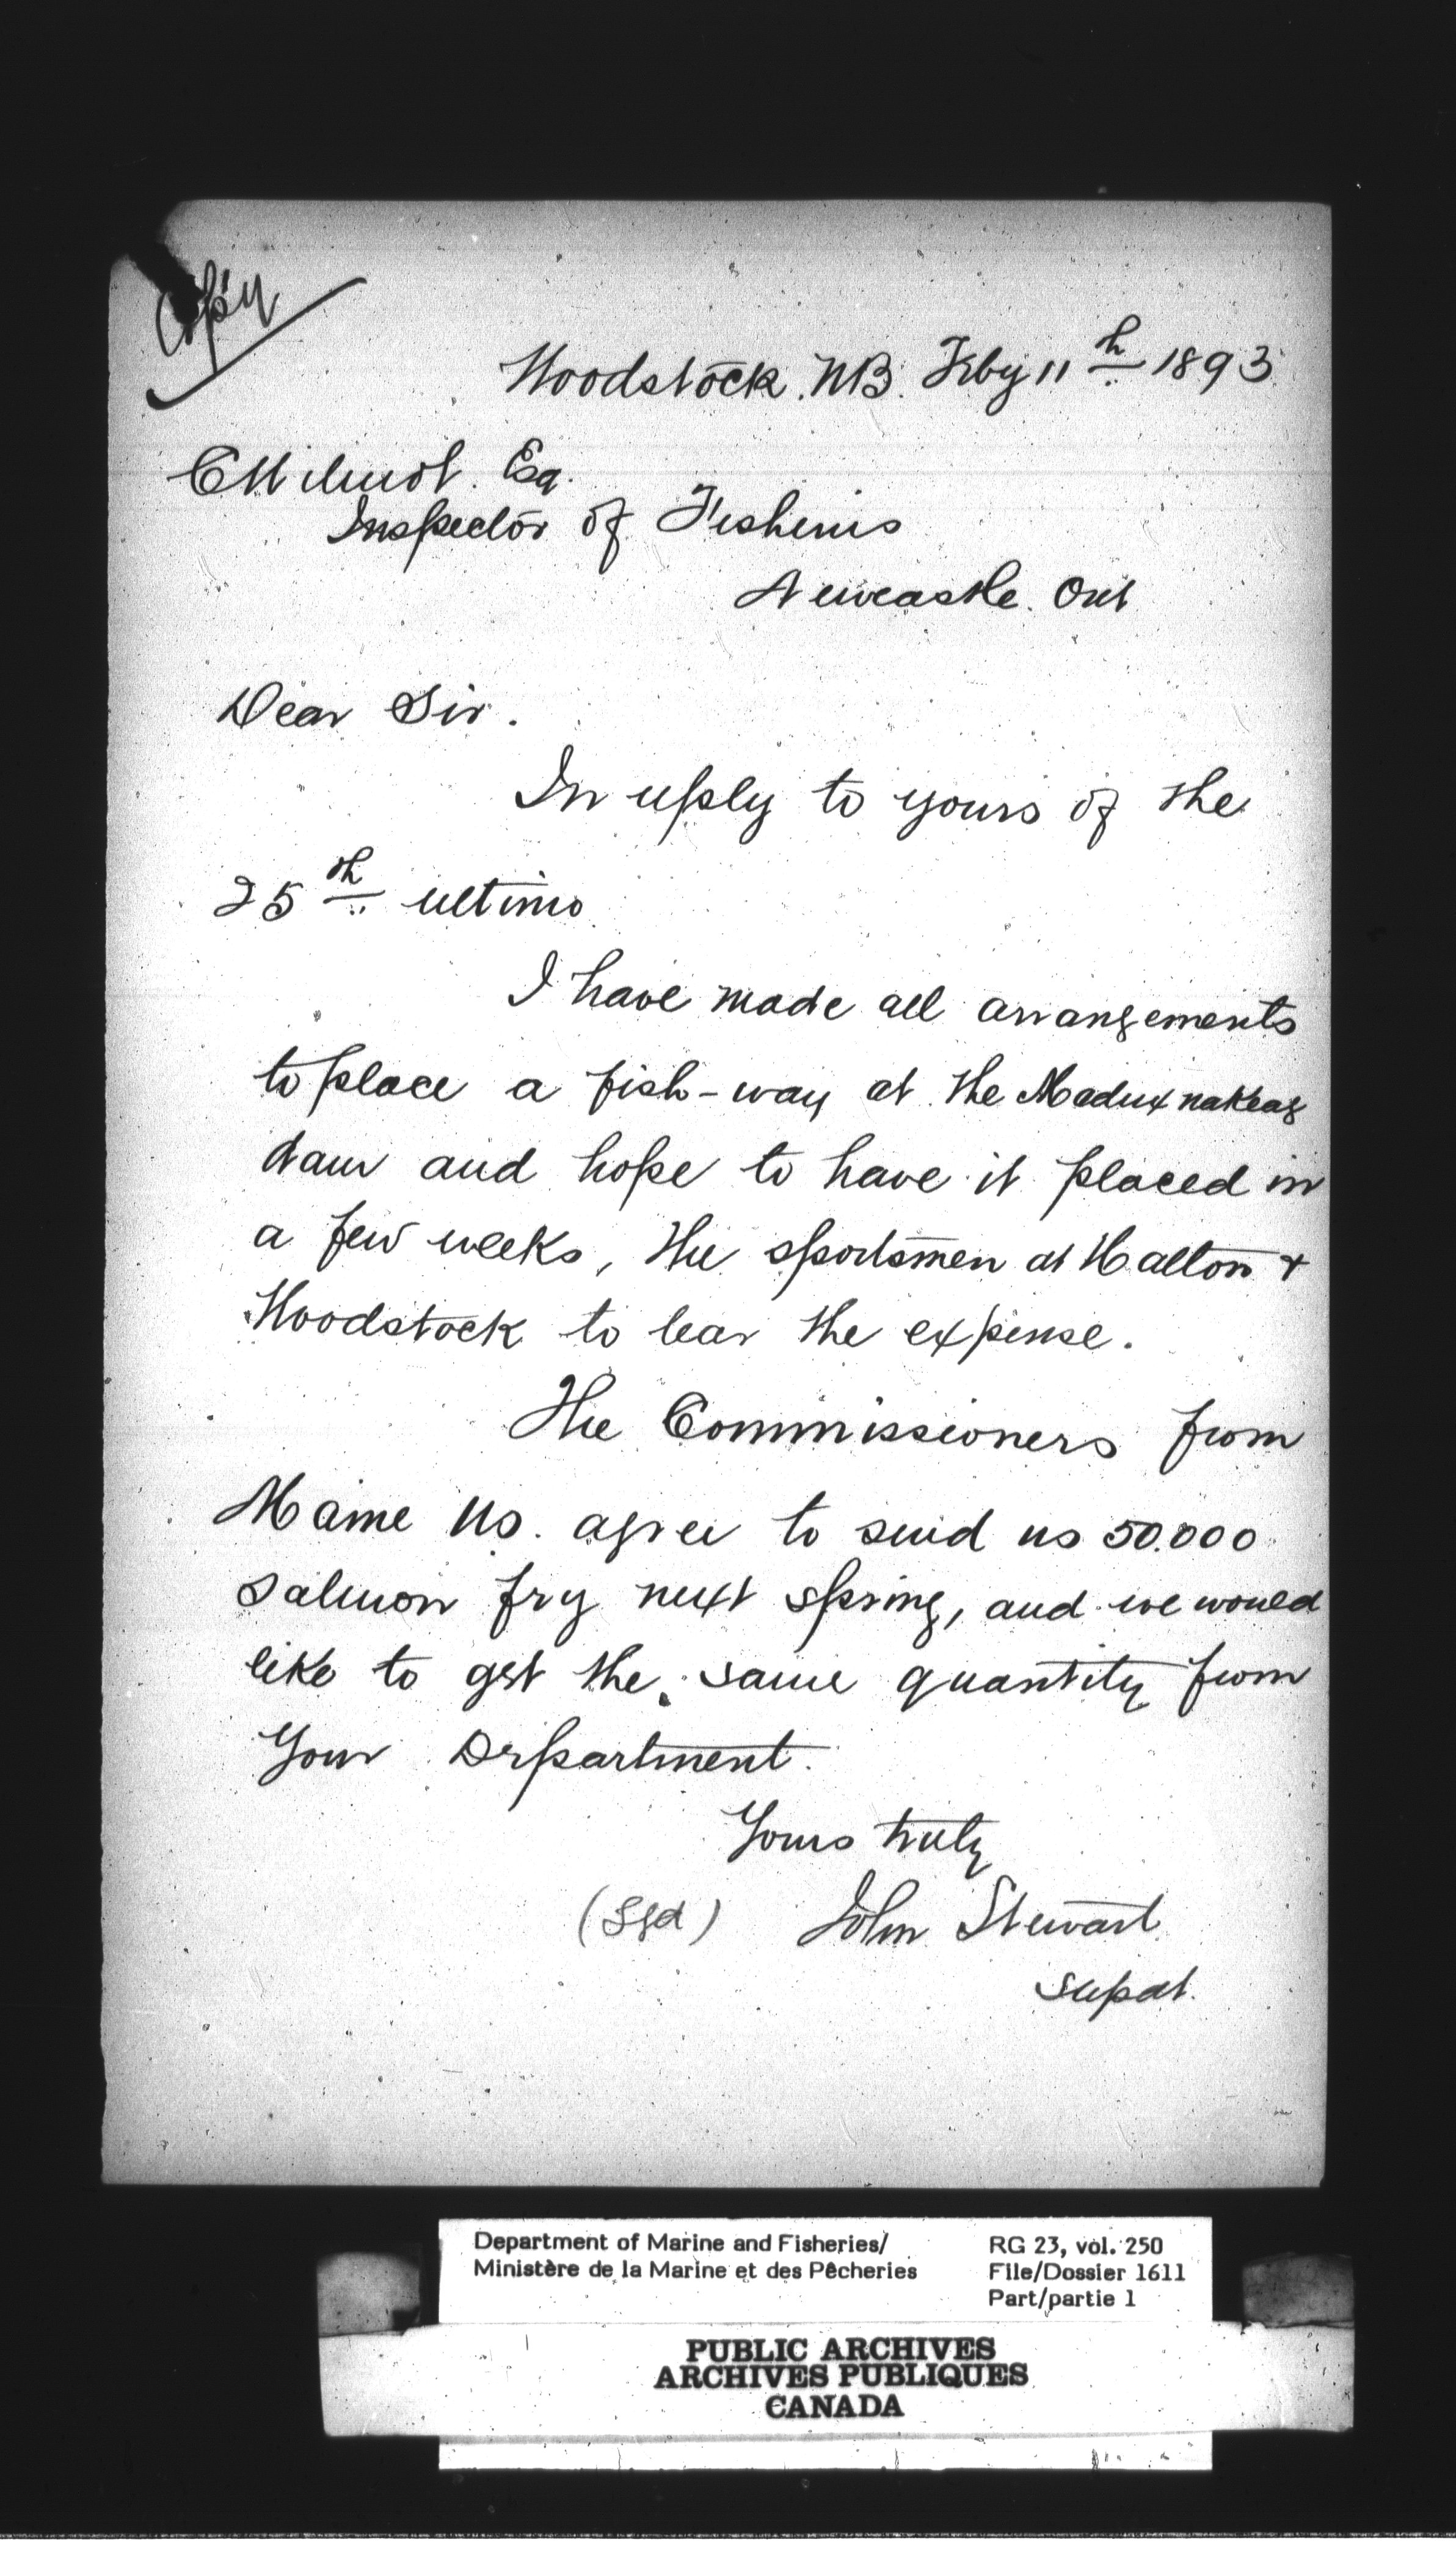 Copy
Woodstock. NB. Feby 11th 1893
C Wilmot. Esq.
Inspector of Fisheries
Newcastle. Ont
Dear Sir.
In reply to yours of the
25th ultimo
I have made all arrangements
to place a fish-way at the Maduxnakeag
dam and hope to have it placed in
a few weeks, the sportsmen at Halton &
Woodstock to bear the expense.
The Commissioners from
Maine US. agree to send us 50.000
salmon fry next spring, and we would
like to get the same quantity from
Your Department.
Yours truly
(Sgd) John Stewart
Supdt.
Department of Marine and Fisheries/
Ministère de la Marine et des Pêcheries
RG 23, vol. 250
File/Dossier 1611
Part/partie 1
PUBLIC ARCHIVES
ARCHIVES PUBLIQUES
CANADA